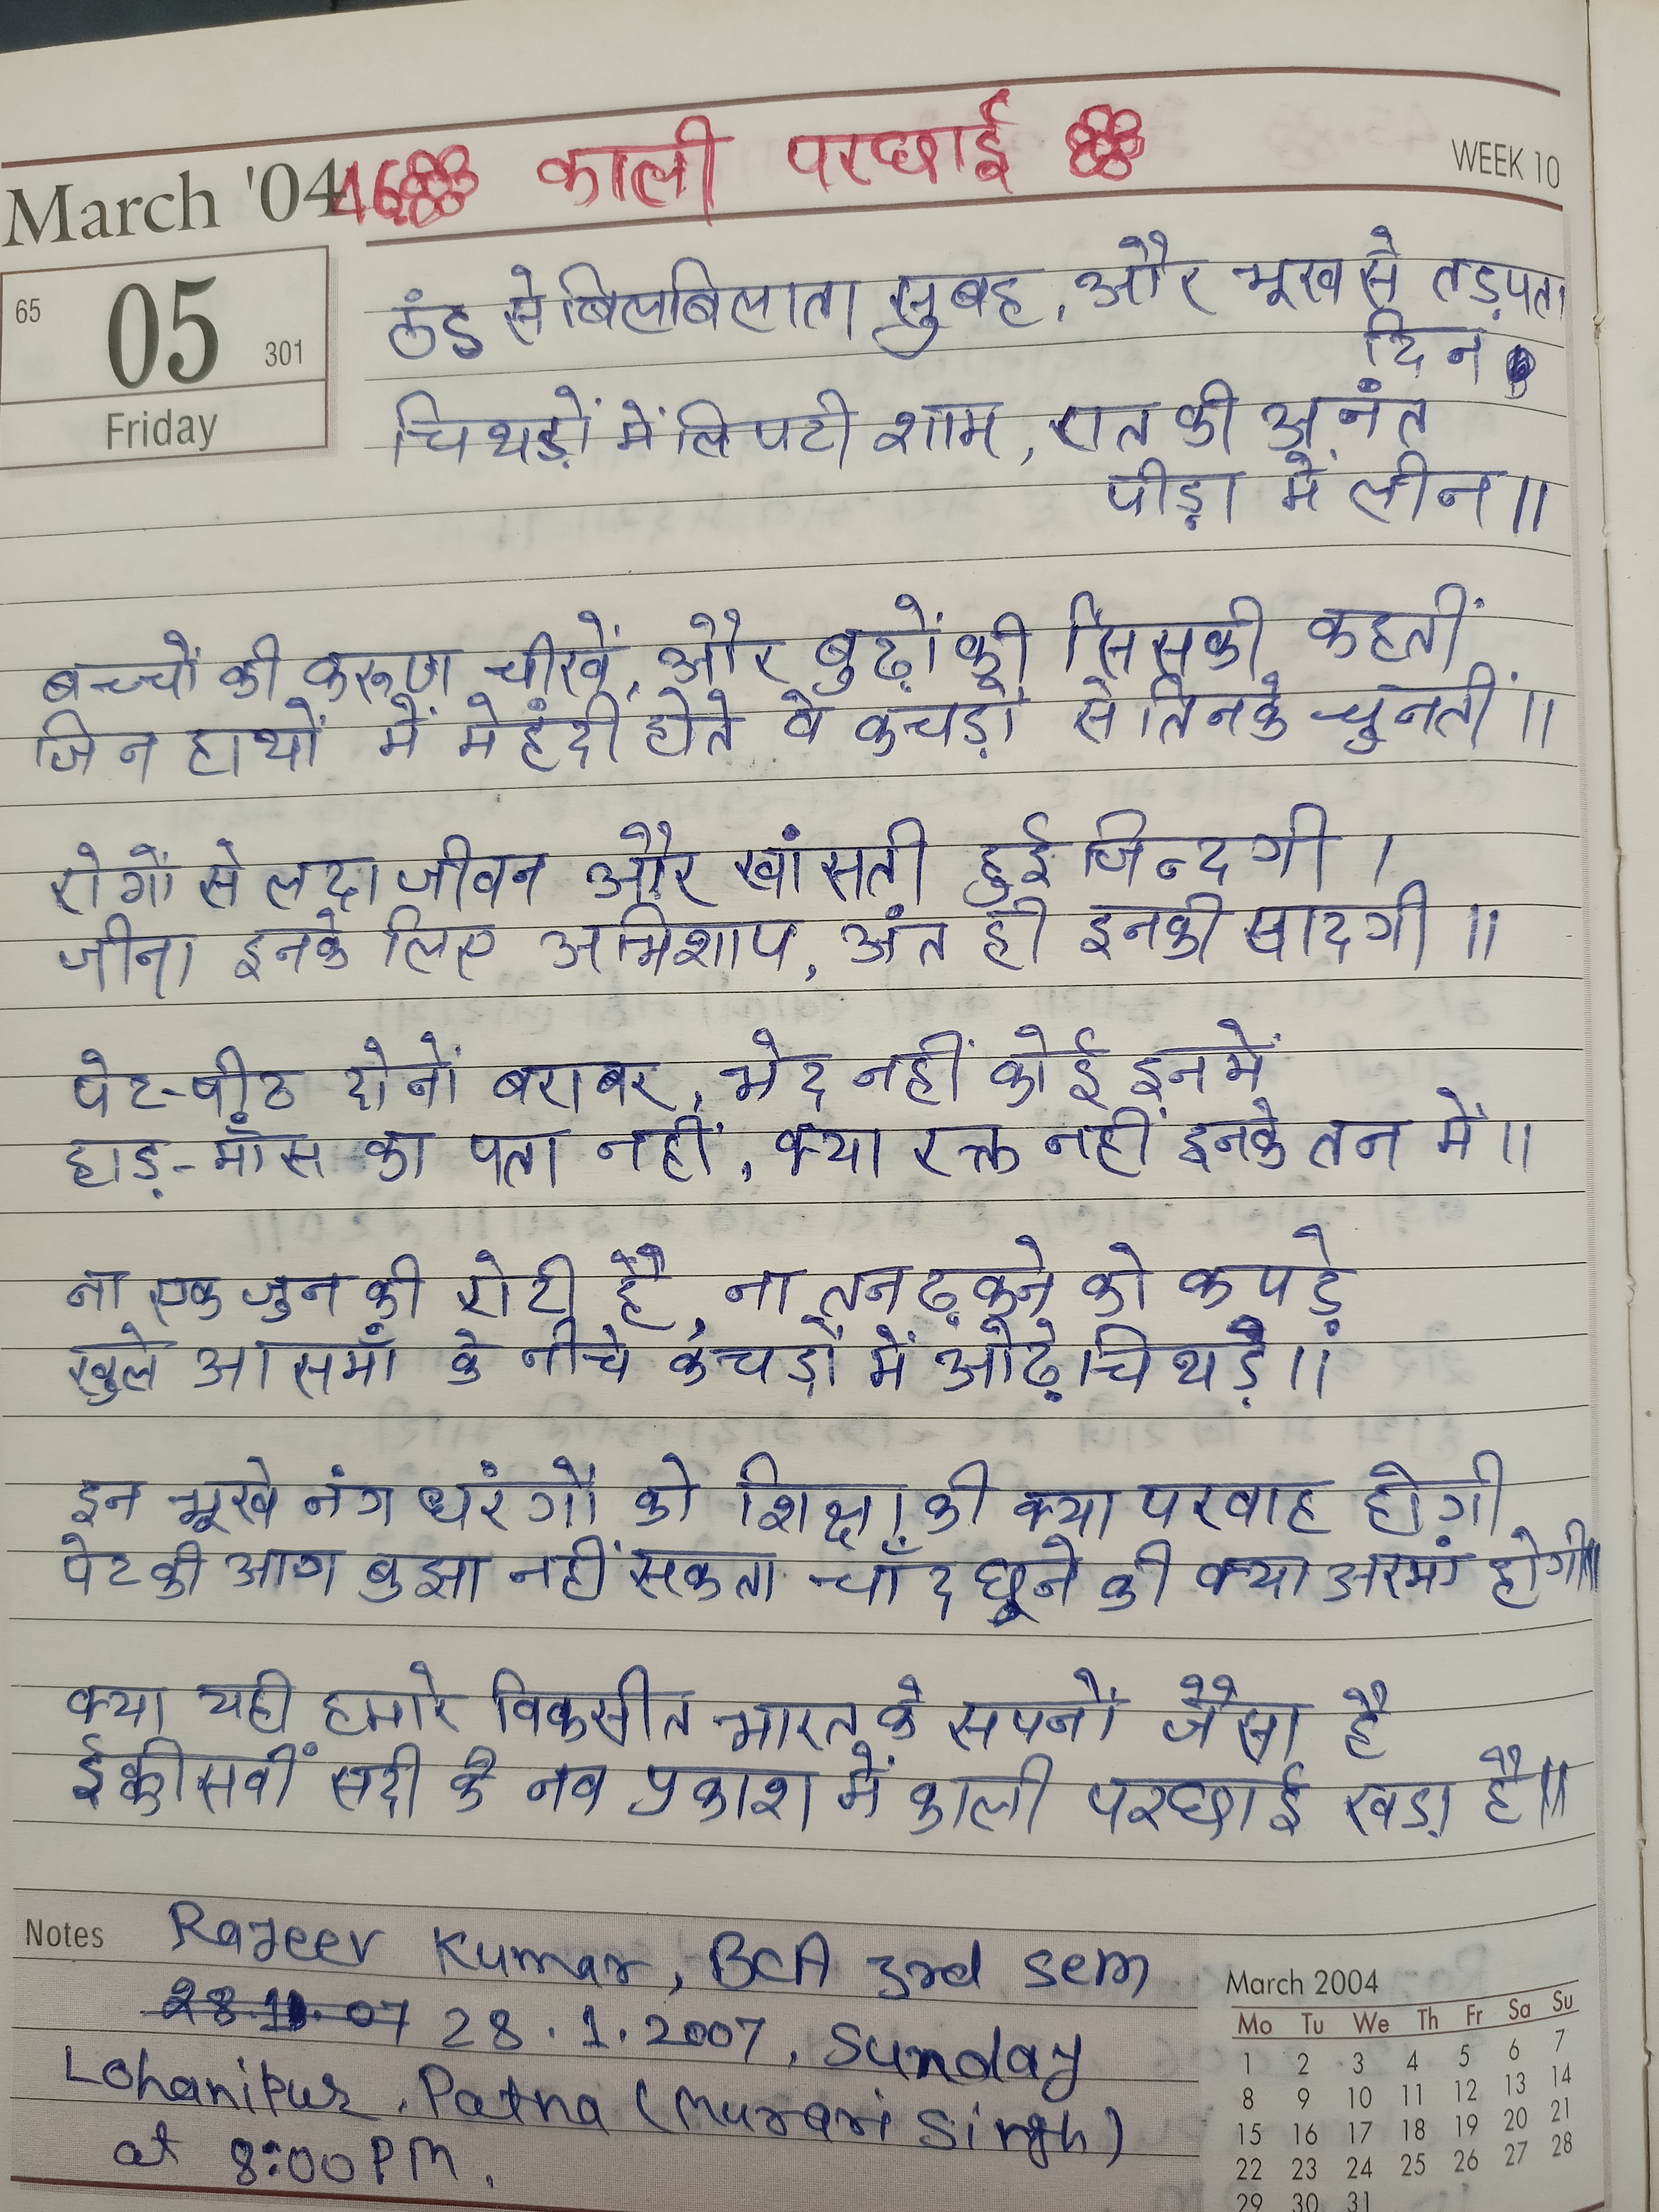 March '04
46 काली परछाई
WEEK 10
65
05
301
Friday
ठंड से बिलबिलाता सुबह, और भूख से तड़पता
दिन
चिथड़ों में लिपटी शाम, रात की अनंत
पीड़ा में लीन॥
बच्चों की करूण चीखें, और बुढ़ों की सिसकी कहतीं
जिन हाथों में मेहंदी होते वे कचड़ों से तिनके चुनतीं॥
रोगों से लदा जीवन और खांसती हुई जिन्दगी।
जीना इनके लिए अभिशाप, अंत ही इनकी सादगी॥
पेट-पीठ दोनों बराबर, भेद नहीं कोई इनमें
हाड़-माँस का पता नहीं, क्या रक्त नहीं इनके तन में॥
ना एक जुन की रोटी है, ना तन ढ़कने को कपड़े
खुले आसमाँ के नीचे कचड़ों में ओढ़े चिथड़े॥
इन भूखे नंग धरंगों को शिक्षा की क्या परवाह होगी
पेट की आग बुझा नहीं सकता चाँद छूने की क्या अरमां होगी॥
क्या यही हमारे विकसीत भारत के सपनों जैसा है
ईक्कीसवीं सदी के नव प्रकाश में काली परछाई खड़ा है॥
Notes
Rajeev Kumar, BCA 3rd sem
28.11.07 28.1.2007, Sunday
Lohanipur, Patna (Murari Singh)
at 8:00 PM.
March 2004
Mo Tu We Th Fr Sa Su
1 2 3 4 5 6 7
8 9 10 11 12 13 14
15 16 17 18 19 20 21
22 23 24 25 26 27 28
29 30 31